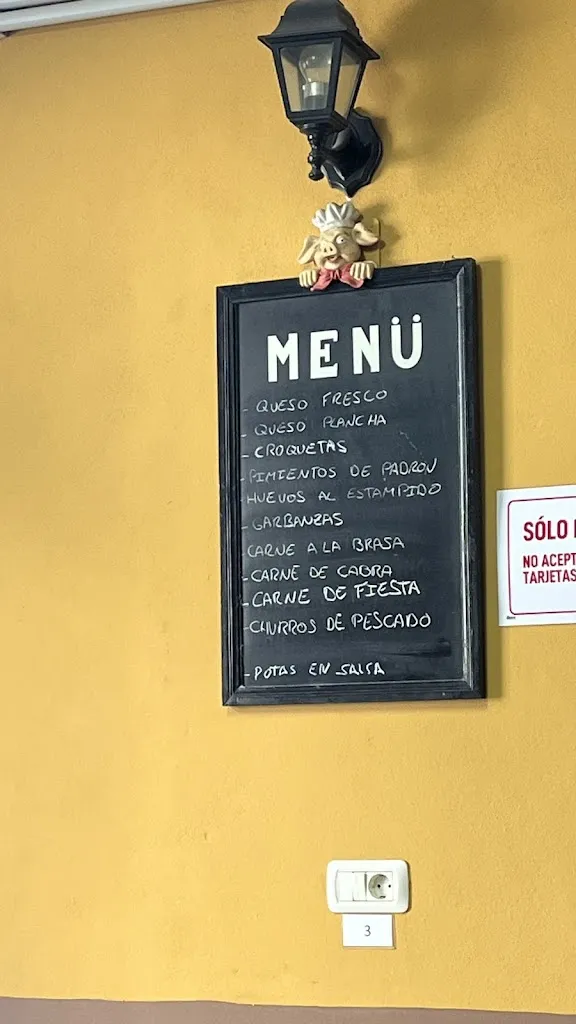 MENÜ
- QUESO FRESCO
- QUESO PLANCHA
- CROQUETAS
PIMIENTOS DE PADRON
HUEVOS AL ESTAMPIDO
- GARBANZAS
CARNE A LA BRASA
- CARNE DE CABRA
- CARNE DE FIESTA
- CHURROS DE PESCADO
- POTAS EN SALSA
SÓLO
NO ACEPT
TARJETAS
3